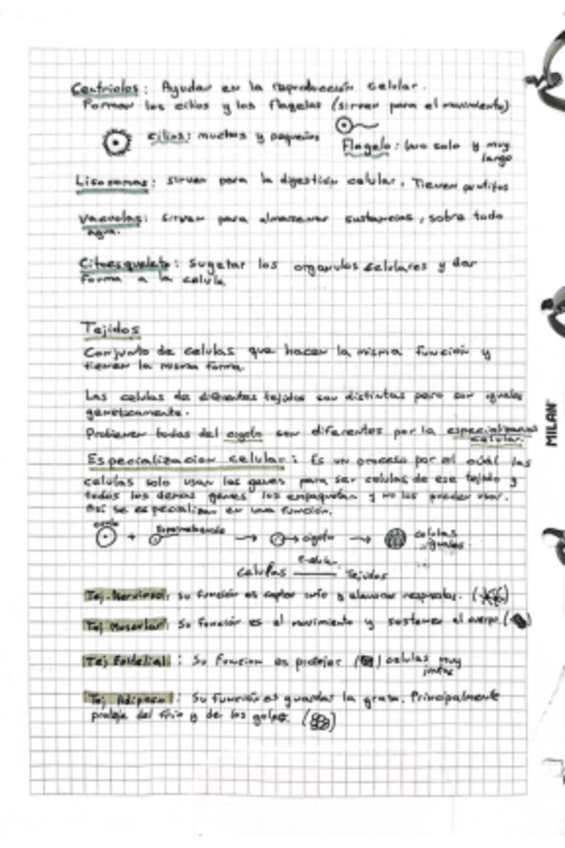 Centriolos: Ayudar en la reproducción celular.
Forman los cilios y los flagelos (sirven para el movimiento)
Cilios: muchos y pequeños
Flagelo: Uno solo y muy
largo
Lisosomas: sirven para la digestión celular. Tienen
Vacuolas: sirven para almacenar sustancias, sobre todo
agua.
Citoesqueleto: Sugetar los organulos celulares y dar
forma a la celula
Tejidos
Conjunto de celulas que hacen la misma función y
tienen la misma forma.
Las celulas de diferentes tejidos son distintas pero son iguales
genéticamente.
todas del cigoto son diferentes por la especialización
celular.
Especializacion celular: Es un proceso por el cúal las
celulas solo usan los genes para ser celulas de ese tejido y
todos los demas genes los empaquetan y no los pueden usar.
Asi se especializan en una función.
ovulo + espermatozoide → cigoto → celulas
iguales
celulas Tejidos
Tej. Nervioso: su función es captar info y elaborar respuestas.
Tej Muscular: Su función es el movimiento y sostener el cuerpo
Tej Epidelial: Su funcion es protejer celulas muy
juntas
Tej Adiposo: Su función es guardar la grasa. Principalmente
proteje del frio y de los golpes.
MILAN